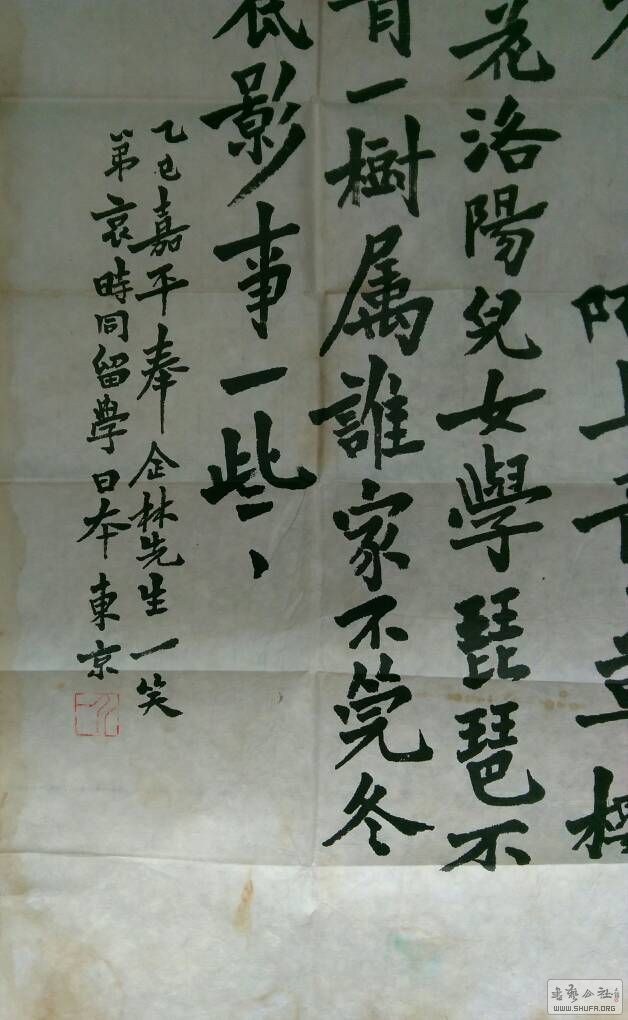 陌上青青草樓
花洛陽兒女學琵琶不
青一樹属誰家不筦冬
底影事一些、
乙巳嘉平奉企林先生一笑
弟哀時同留學日本東京
書藝公社
WWW.SHUFA.ORG